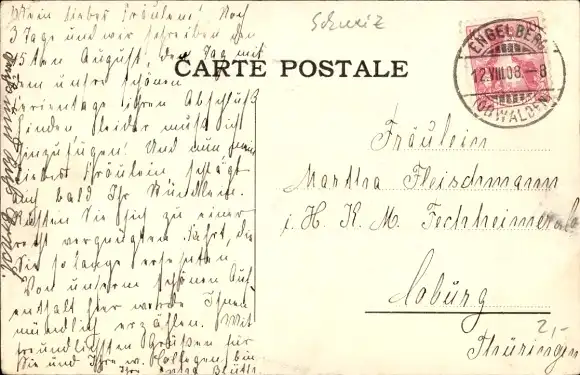 Mein liebes Fräulein! Noch
3 Tage und wir schreiben den
15ten August, den Tag mit
dem unsre schönen
Ferientage ihren Abschluß
finden. Leider muß ich
hinzufügen! Und nun
liebes Fräulein schlägt
auch bald Ihr Stündlein.
Rüsten Sie sich zu einer
recht vergnügten Fahrt, die
Sie so lange ersehnten.
Von unserem schönen Auf-
enthalt hier werde Ihnen
mündlich erzählen. Mit
freundlichsten Grüßen für
Sie und Ihre w. Kollegen bin
Ihr
Schweiz
CARTE POSTALE
ENGELBERG
12.VIII.08.-8
(OBWALDEN)
Fräulein
Martha Fleischmann
i. H. K. M. Fechheimer
Coburg
Thüringen
2,-